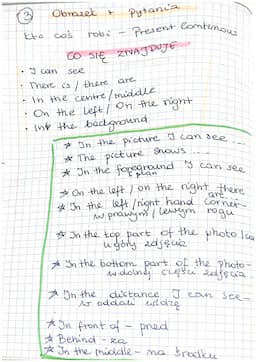 3 Obrazek + Pytania
Kto coś robi - Present Continous
CO SIĘ ZNAJDUJE
• I can see
• There is / there are
• In the centre/middle
• On the left / On the right
• In the background
* In the picture I can see ...
* The picture shows ...
* In the foreground I can see
I plan
* On the left / on the right there are
* In the left/right hand corner -
w prawym / lewym rogu
* In the top part of the photo
u góry zdjęcia
* In the bottom part of the photo -
w dolnej części zdjęcia
* In the distance I can see -
w oddali widzę
* In front of - pned
* Behind - za
* In the middle - na środku